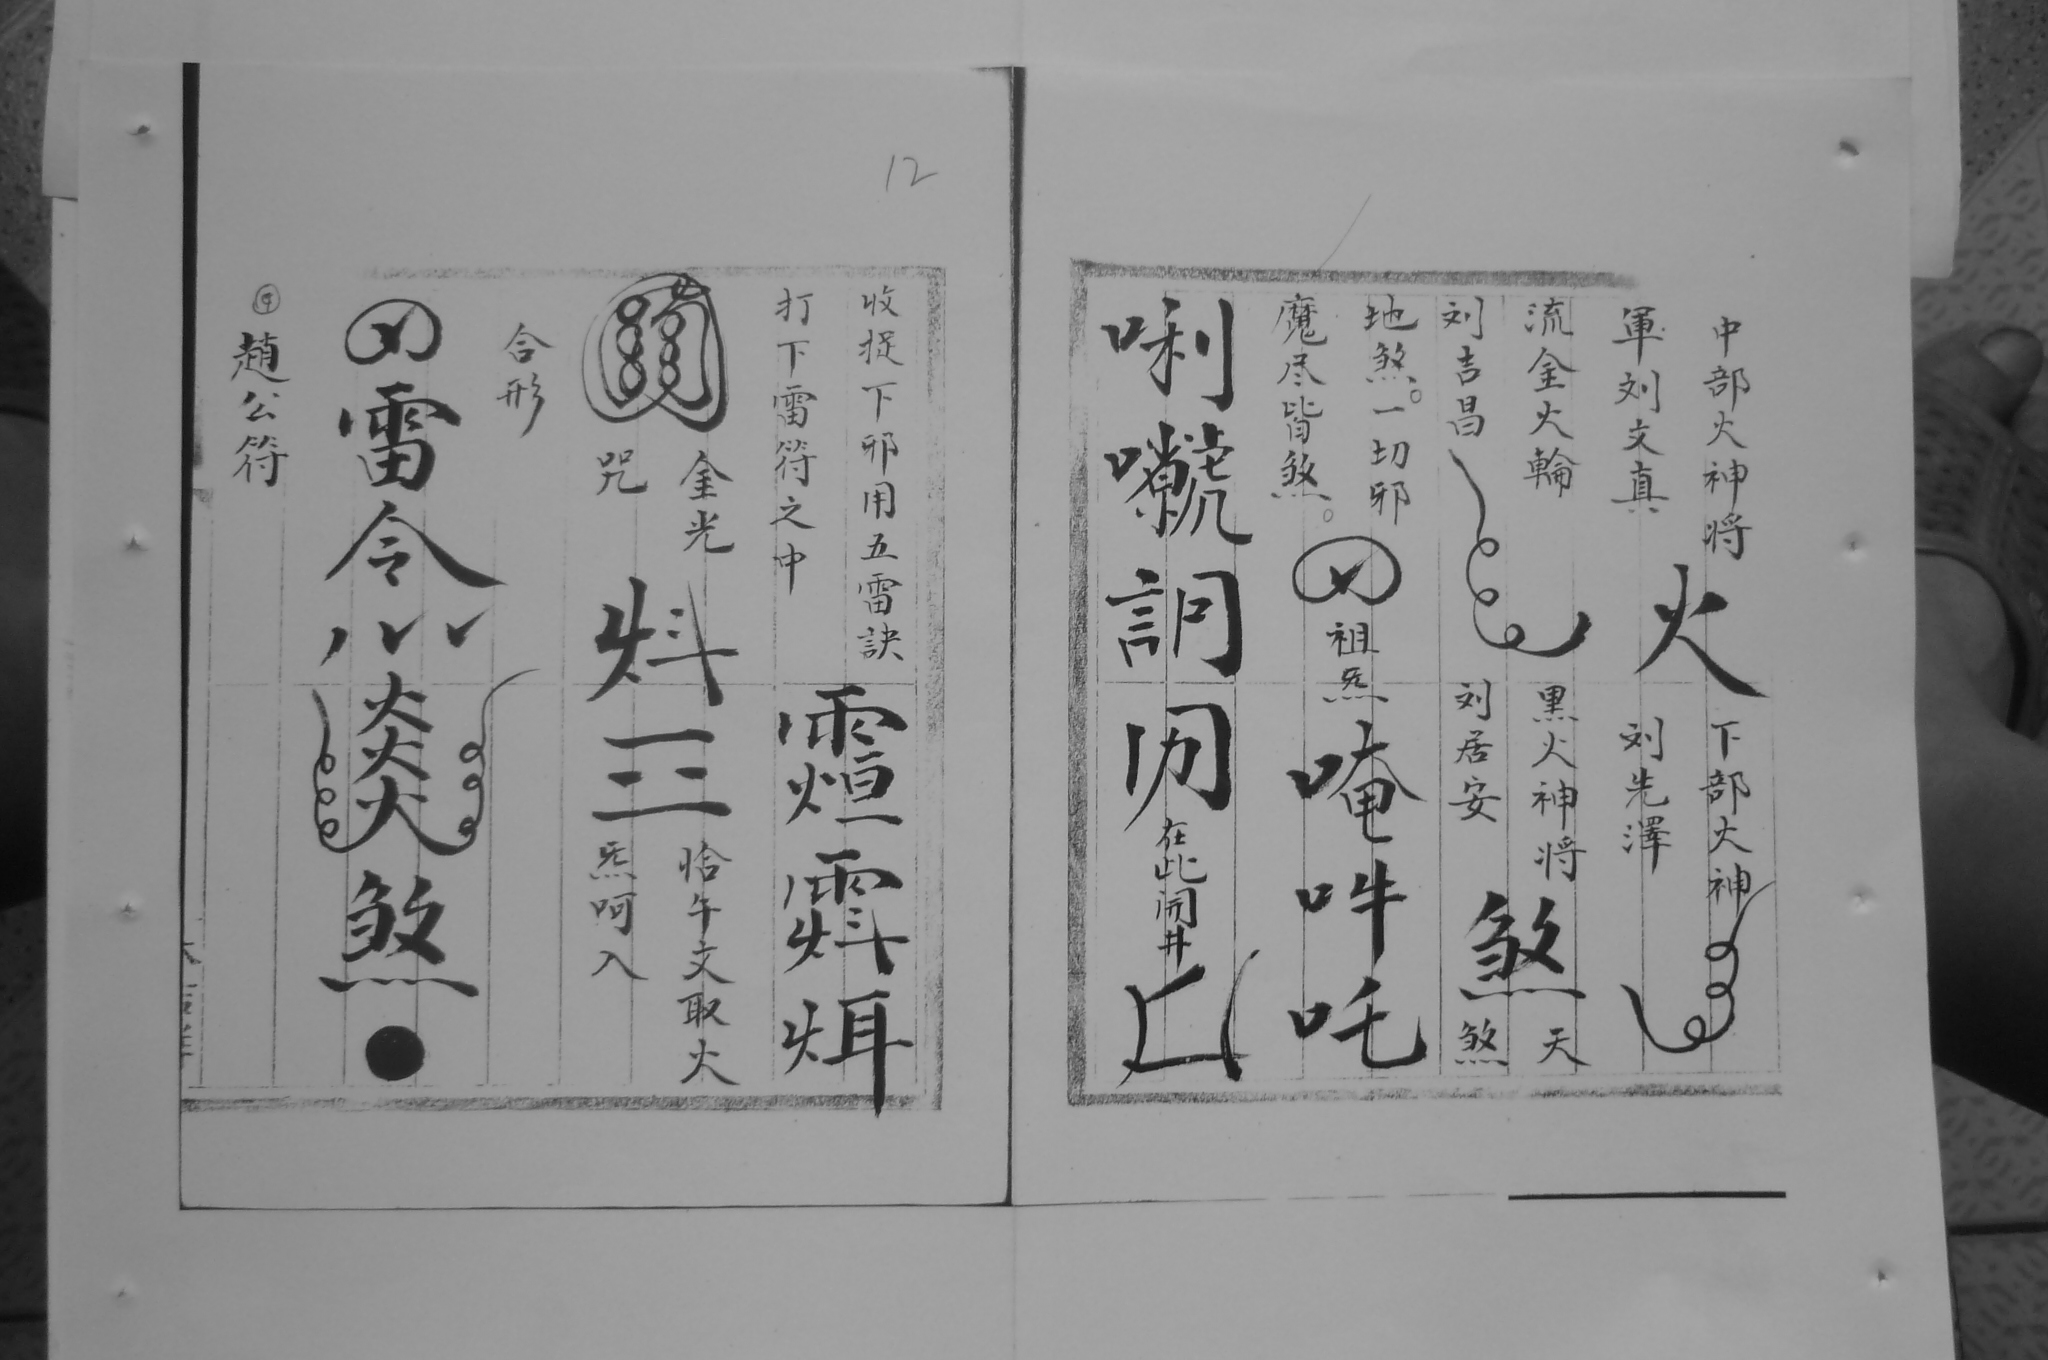 中部火神将
軍刘文真
火
下部火神
刘先澤
流金火輪
刘吉昌
黒火神将
刘居安
煞
天
煞
地煞。一切邪
魔尽皆煞。
祖炁
唵吽吒
唎
在此開井
12
收捉下邪用五雷訣
打下雷符之中
金光
咒
炓三
恰午文取火
炁呵入
合形
雷令
炎火
煞
④趙公符